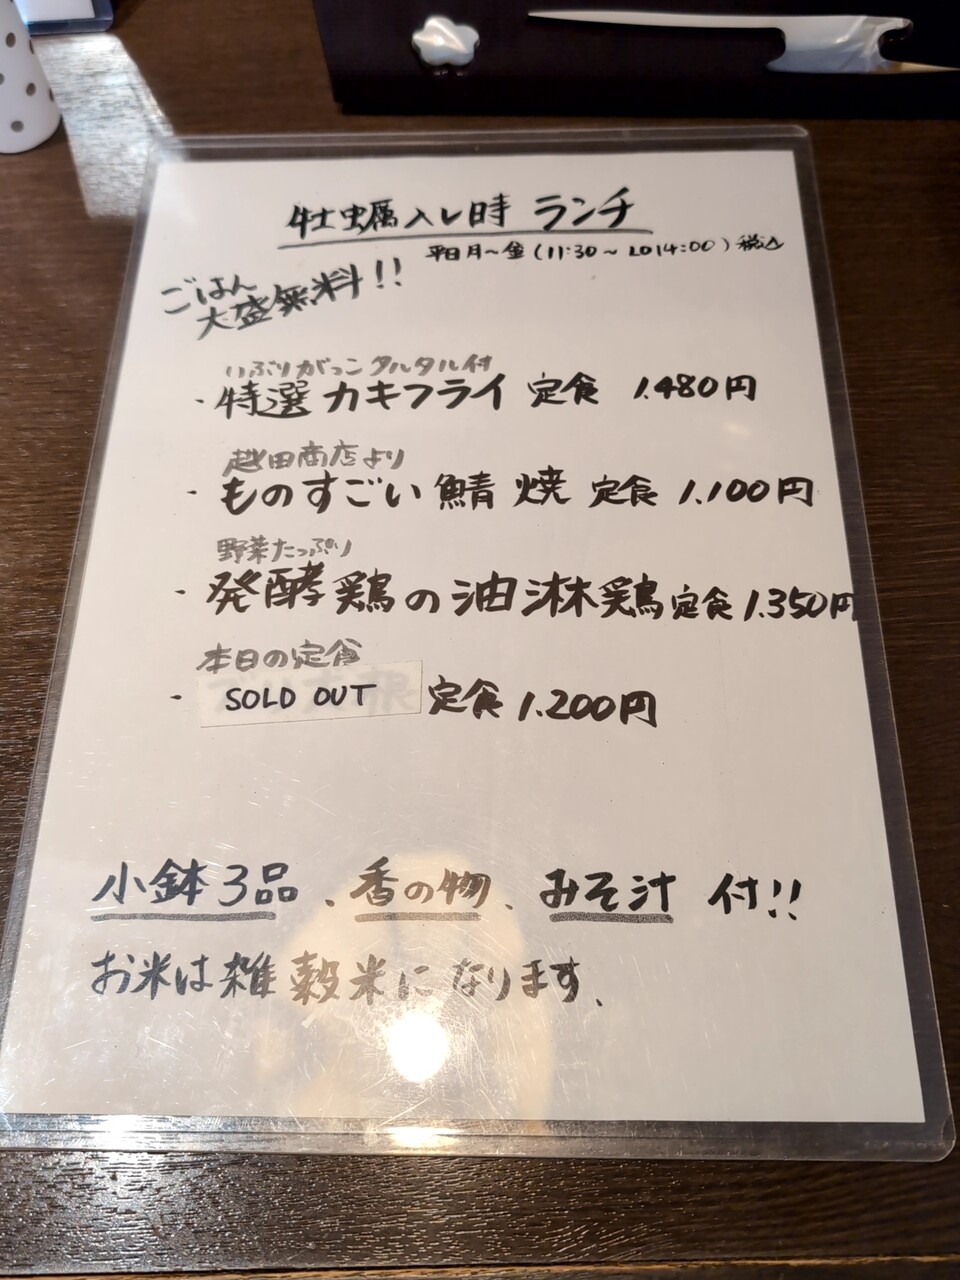 牡蠣入レ時 ランチ
平日月~金(11:30~LO14:00)税込
ごはん
大盛無料!!
いぶりがっこタルタル付
・特選カキフライ 定食 1.480円
越田商店より
・ものすごい鯖焼 定食 1.100円
野菜たっぷり
・発酵鶏の油淋鶏定食1.350円
本日の定食
・SOLD OUT 定食 1.200円
小鉢3品、香の物、みそ汁 付!!
お米は雑穀米になります、